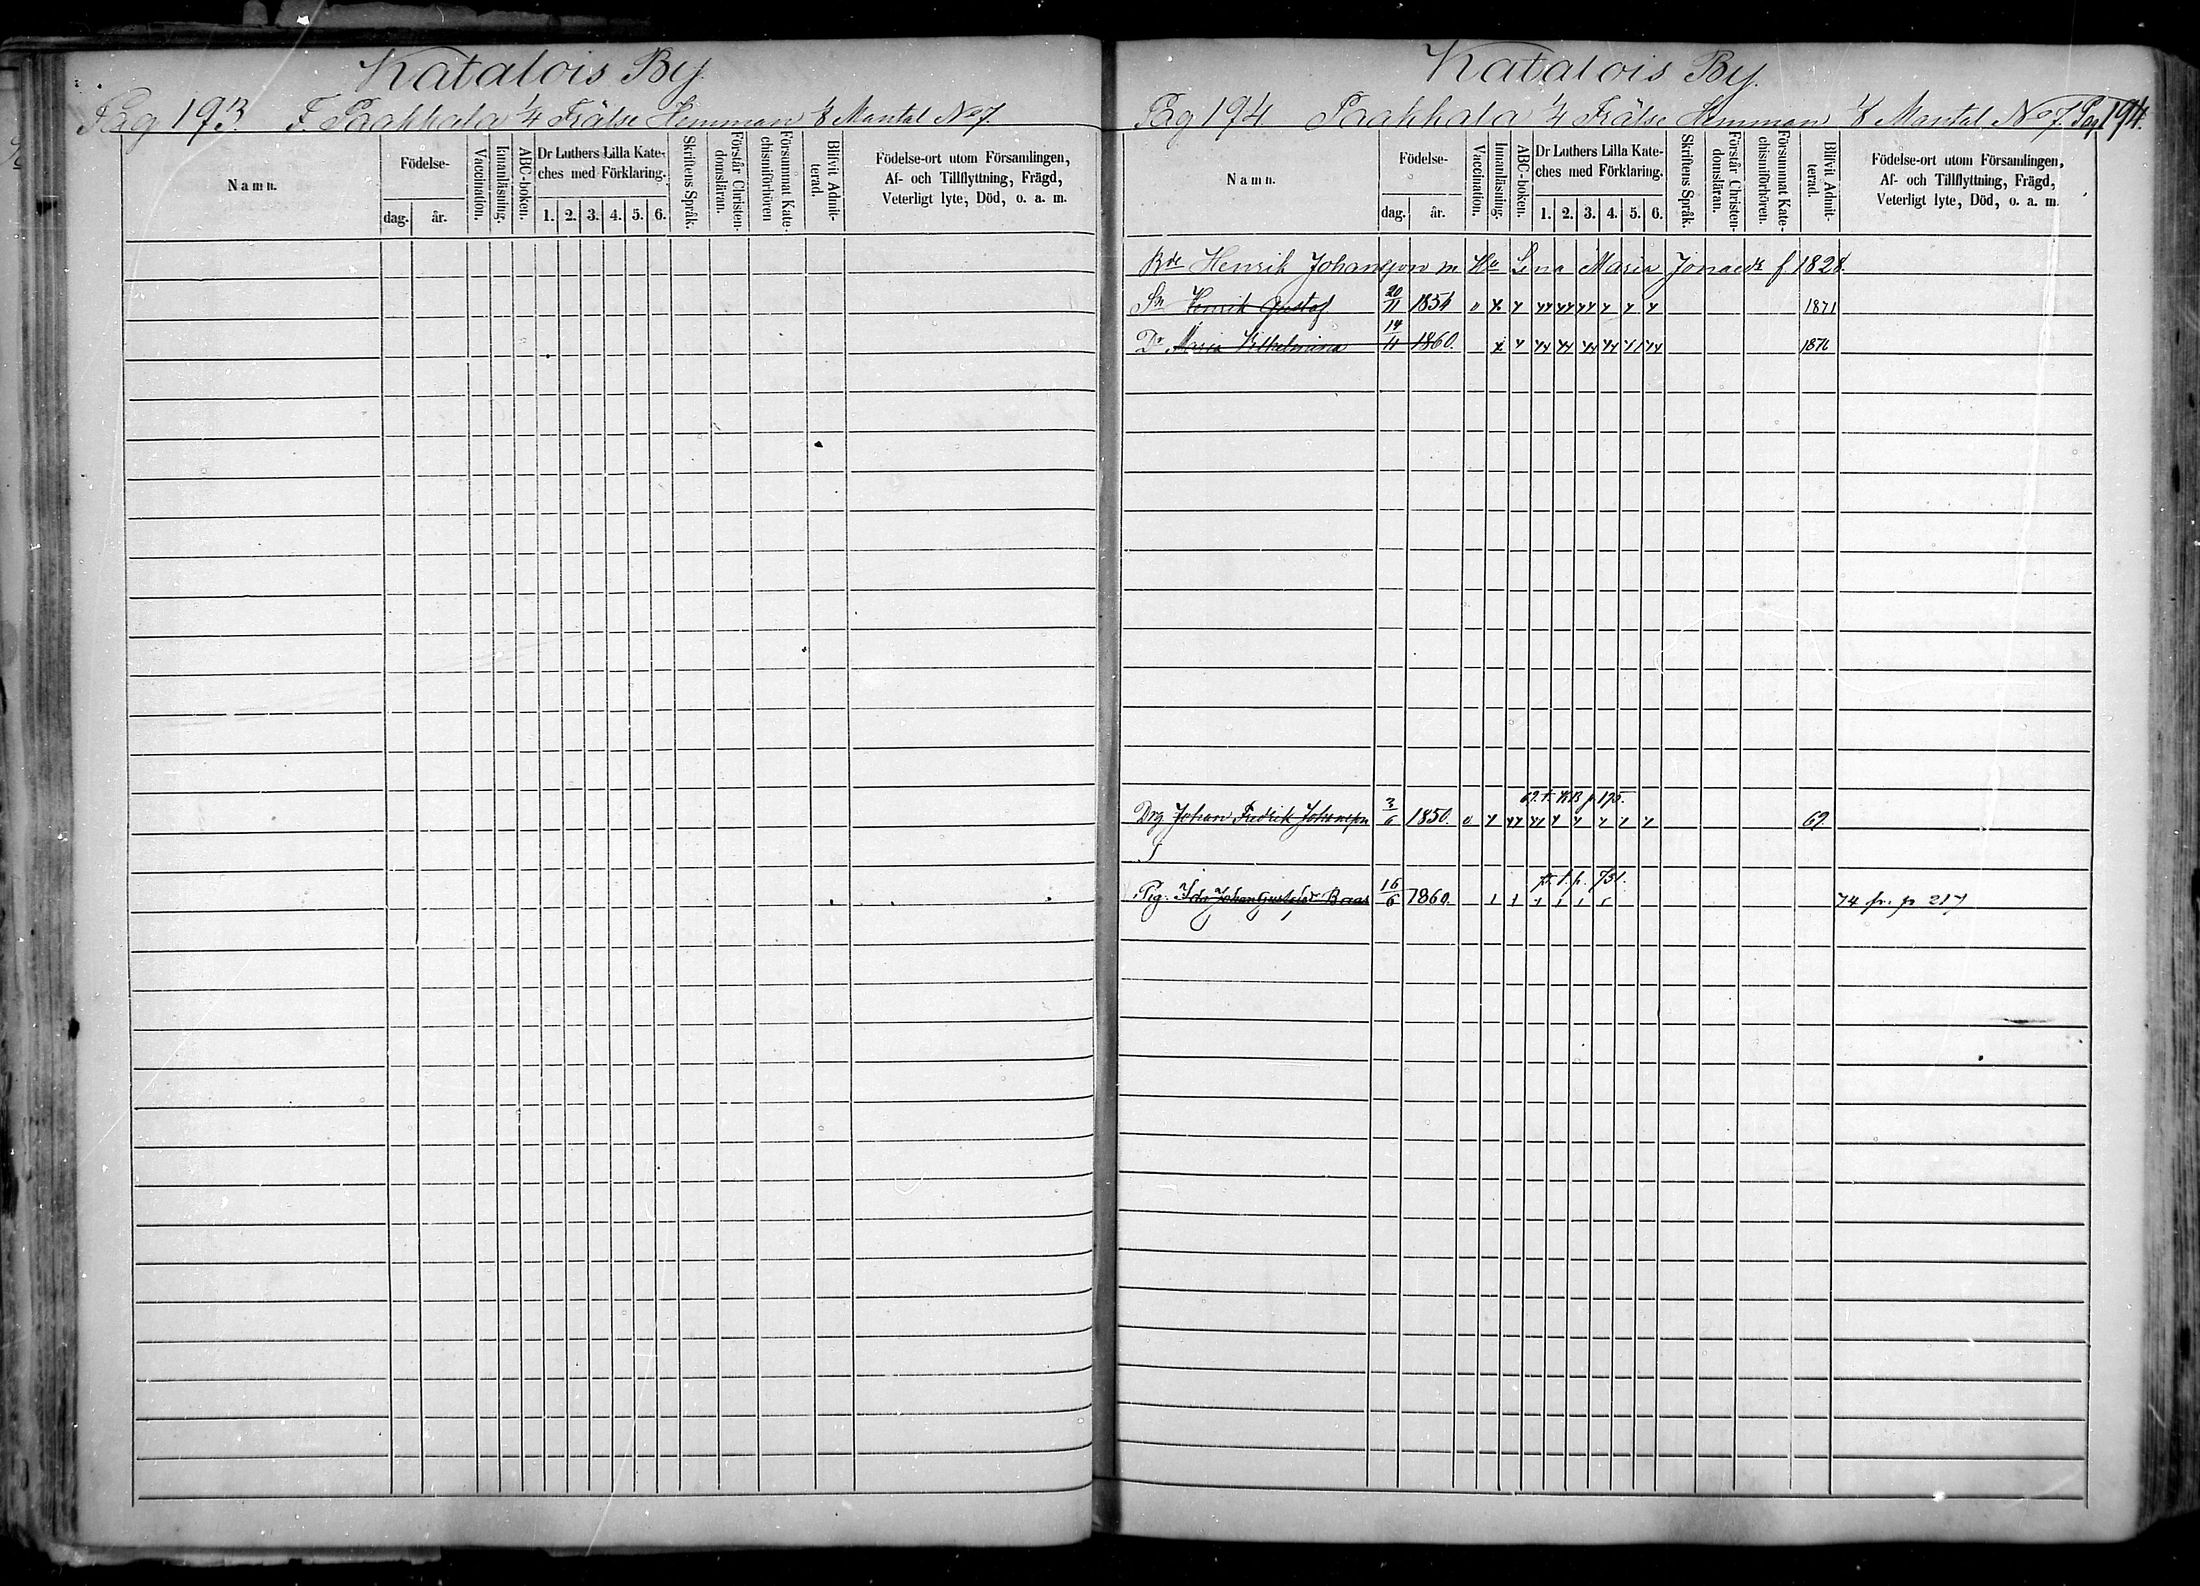 Katalois By.
Pag 193. F. Paakkala 1/4 Frälse Hemman 1/8 Mantal No 7.
Namn.
Födelse-
dag.
år.
Vaccination.
Innanläsning.
ABC-boken.
Dr Luthers Lilla Kate-
ches med Förklaring.
1. 2. 3. 4. 5. 6.
Skriftens Språk.
Förstår Christen-
domsläran.
Försummat Kate-
chismiförhören
Blifvit Admit-
terad.
Födelse-ort utom Församlingen,
Af- och Tillflyttning, Frägd,
Veterligt lyte, Död, o. a. m.
Katalois By.
Pag 194 Paakkala 1/4 Frälse Hemman 1/8 Mantal No 7. Pag. 194.
Namn.
Födelse-
dag.
år.
Vaccination.
Innanläsning.
ABC-boken.
Dr Luthers Lilla Kate-
ches med Förklaring.
1. 2. 3. 4. 5. 6.
Skriftens Språk.
Förstår Christen-
domsläran.
Försummat Kate-
chismiförhören.
Blifvit Admit-
terad.
Födelse-ort utom Församlingen,
Af- och Tillflyttning, Frägd,
Veterligt lyte, Död, o. a. m.
Henrik Johansson m Hu Lena Maria Jonaedr f 1828.
Sn Henrik Gustaf 20/11 1854 1871
Dr Maria Wilhelmina 14/11 1860. 1876
69. f. KB p 195.
Drg Johan Fredrik Johansson 3/6 1850. 69.
p. 751.
Pig. Ida Johan Gustafsdr 16/6 1860. 74 fr. p 217